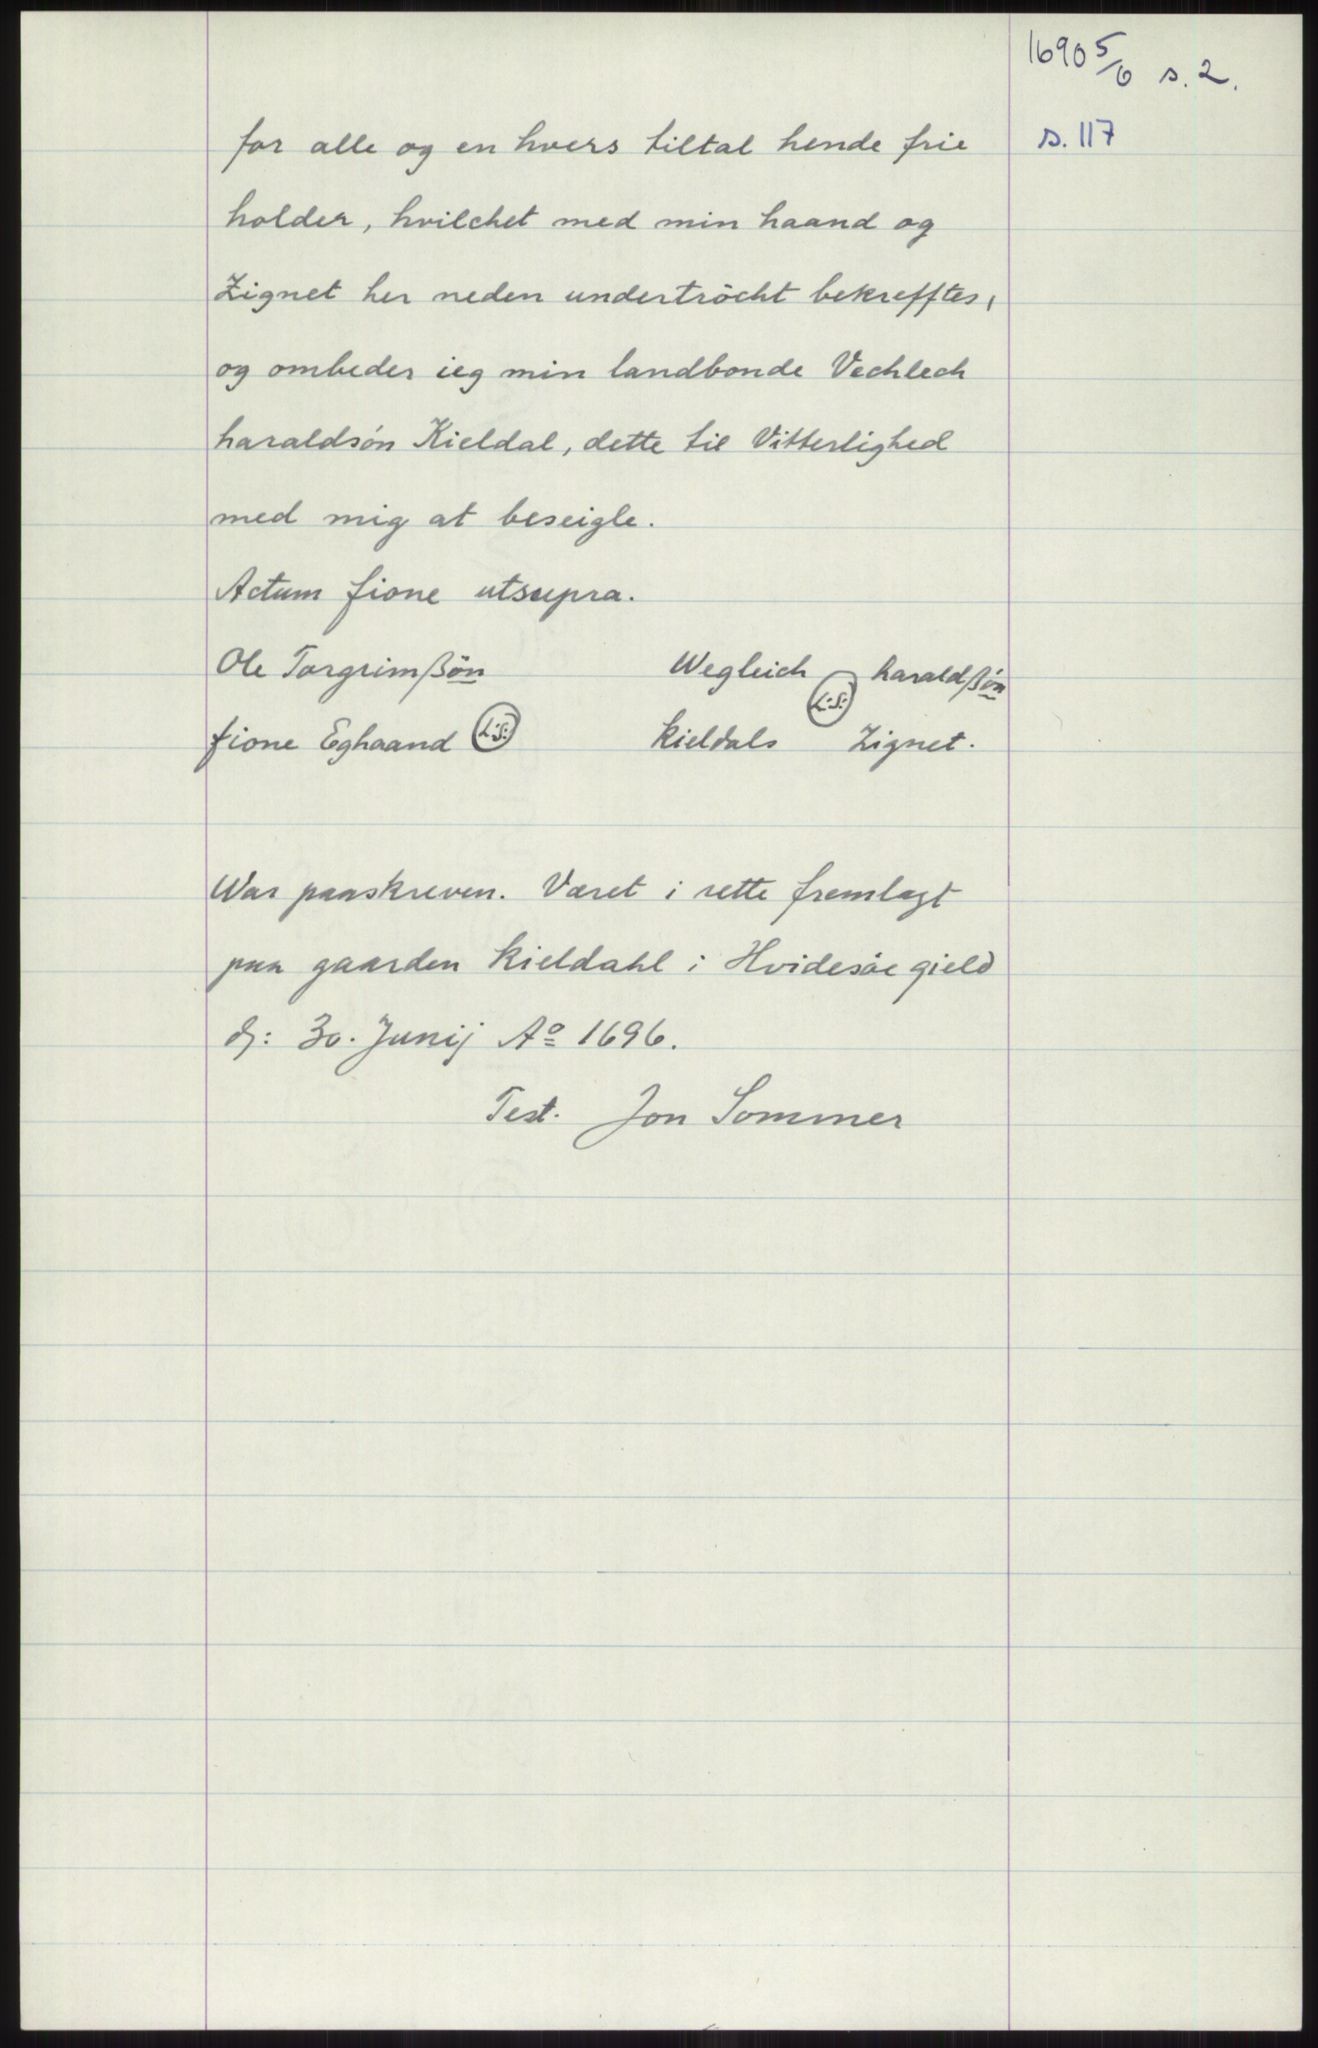 1690 5/6 s. 2.
s. 117
for alle og en hvers tiltal hende frie
holder, hvilchet med min haand og
Zignet her neden undertröcht bekrefftes,
og ombeder ieg min landbonde Vechlech
haraldsön Kieldal, dette til Vitterlighed
med mig at beseigle.
Actum fione utsupra.
Ole Torgrimßön Wegleich haraldßön
fione Eghaand L:S: L:S: Kieldals Zignet.
War paaskreven. Været i rette fremlagt
paa gaarden Kieldahl i Hvidesöe gield
d: 30. Junij Ao 1696.
Test. Jon Sommer